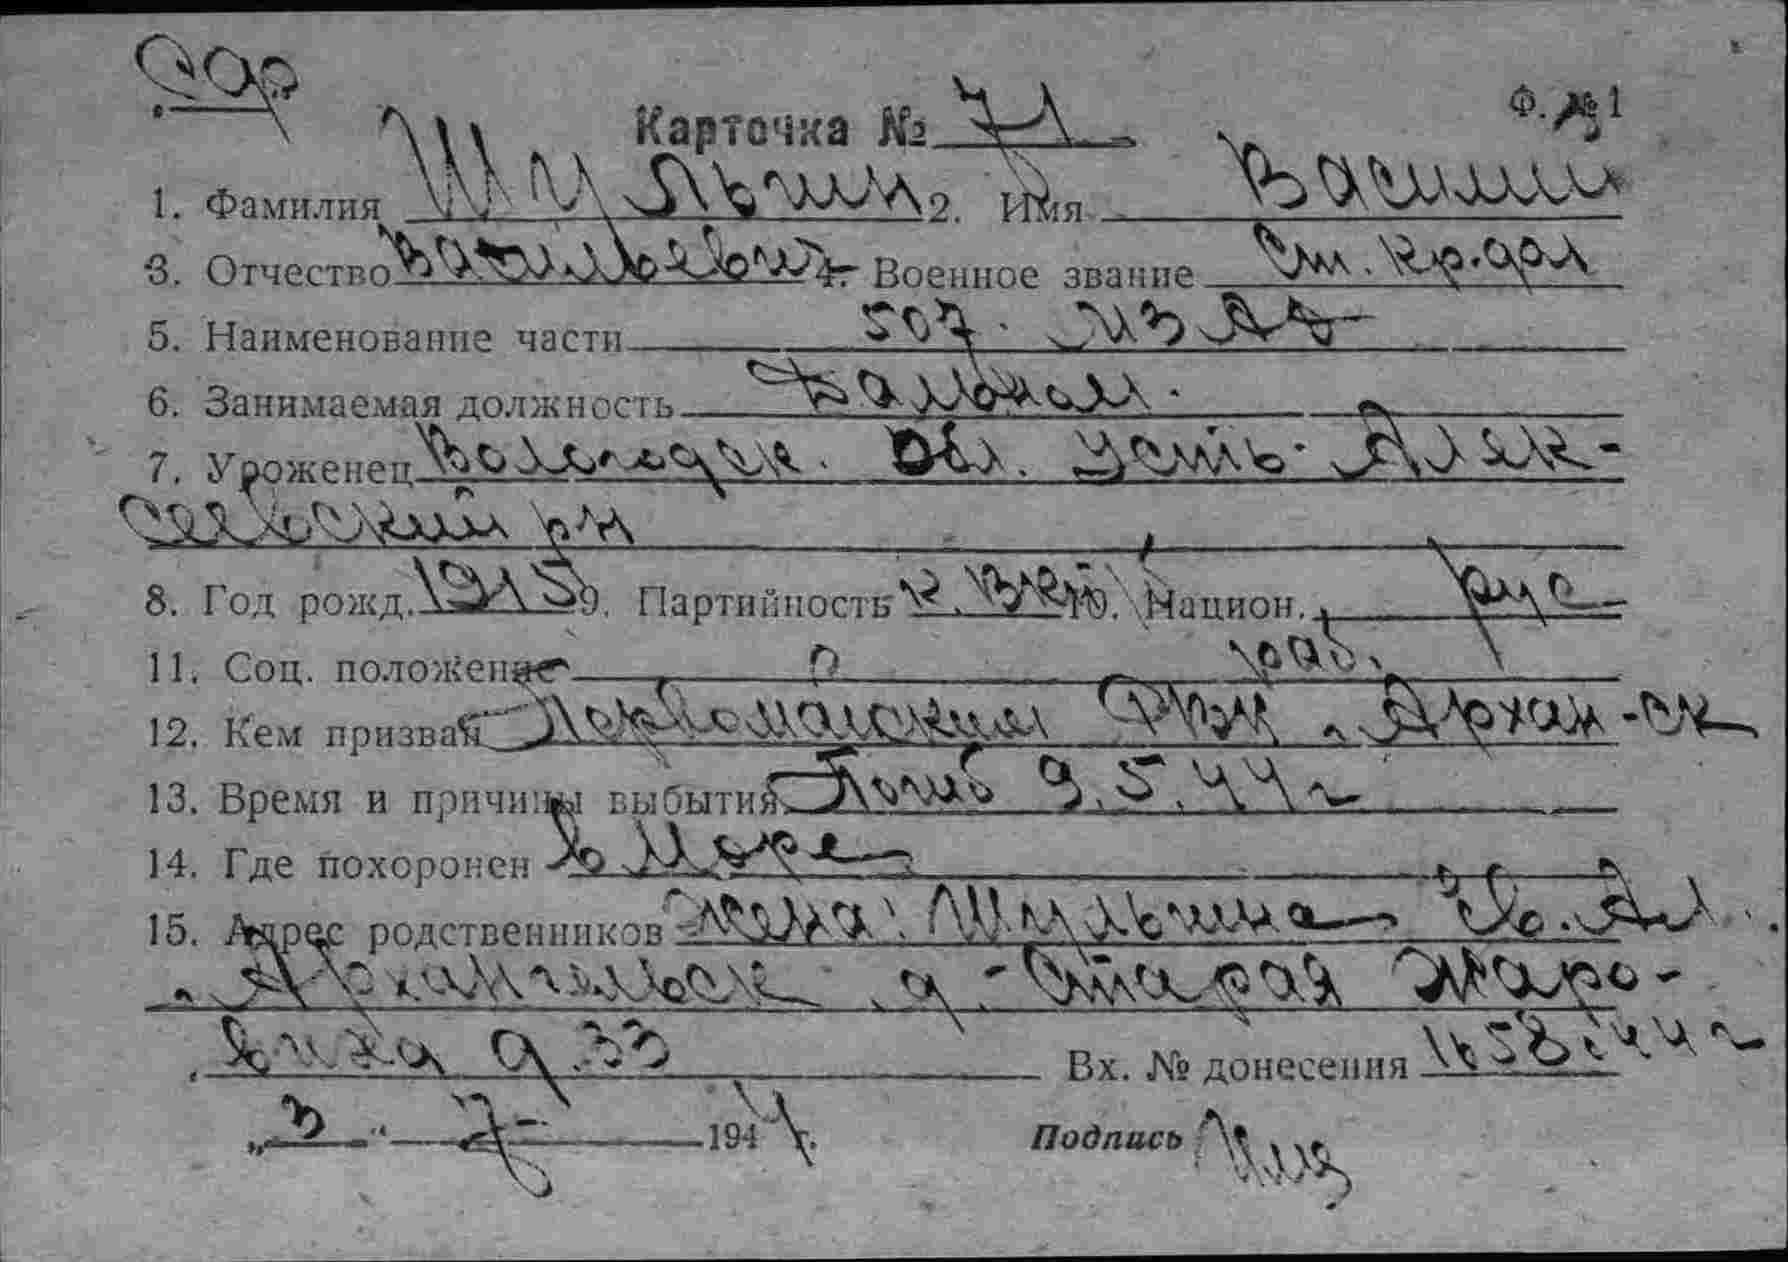 Карточка № 71
Ф. № 1
1. Фамилия Шульгин 2. Имя Василий
3. Отчество Васильевич 4. Военное звание Ст. кр.фл
5. Наименование части 507. МЗАД
6. Занимаемая должность
7. Уроженец Вологодск. Обл. Усть-Аляк-
сеевский рн
8. Год рожд. 1915 9. Партийность к. ВКП 10. Национ. рус
11. Соц. положение раб.
12. Кем призван Первомайским РВК г. Архан-ск
13. Время и причины выбытия Погиб 9.5.44 г
14. Где похоронен в Море
15. Адрес родственников Жена: Шульгина
г. Архангельск д. Старая Жаро-
виха д. 33 Вх. № донесения 1658с 44 г
„3“ 7 1944 г. Подпись